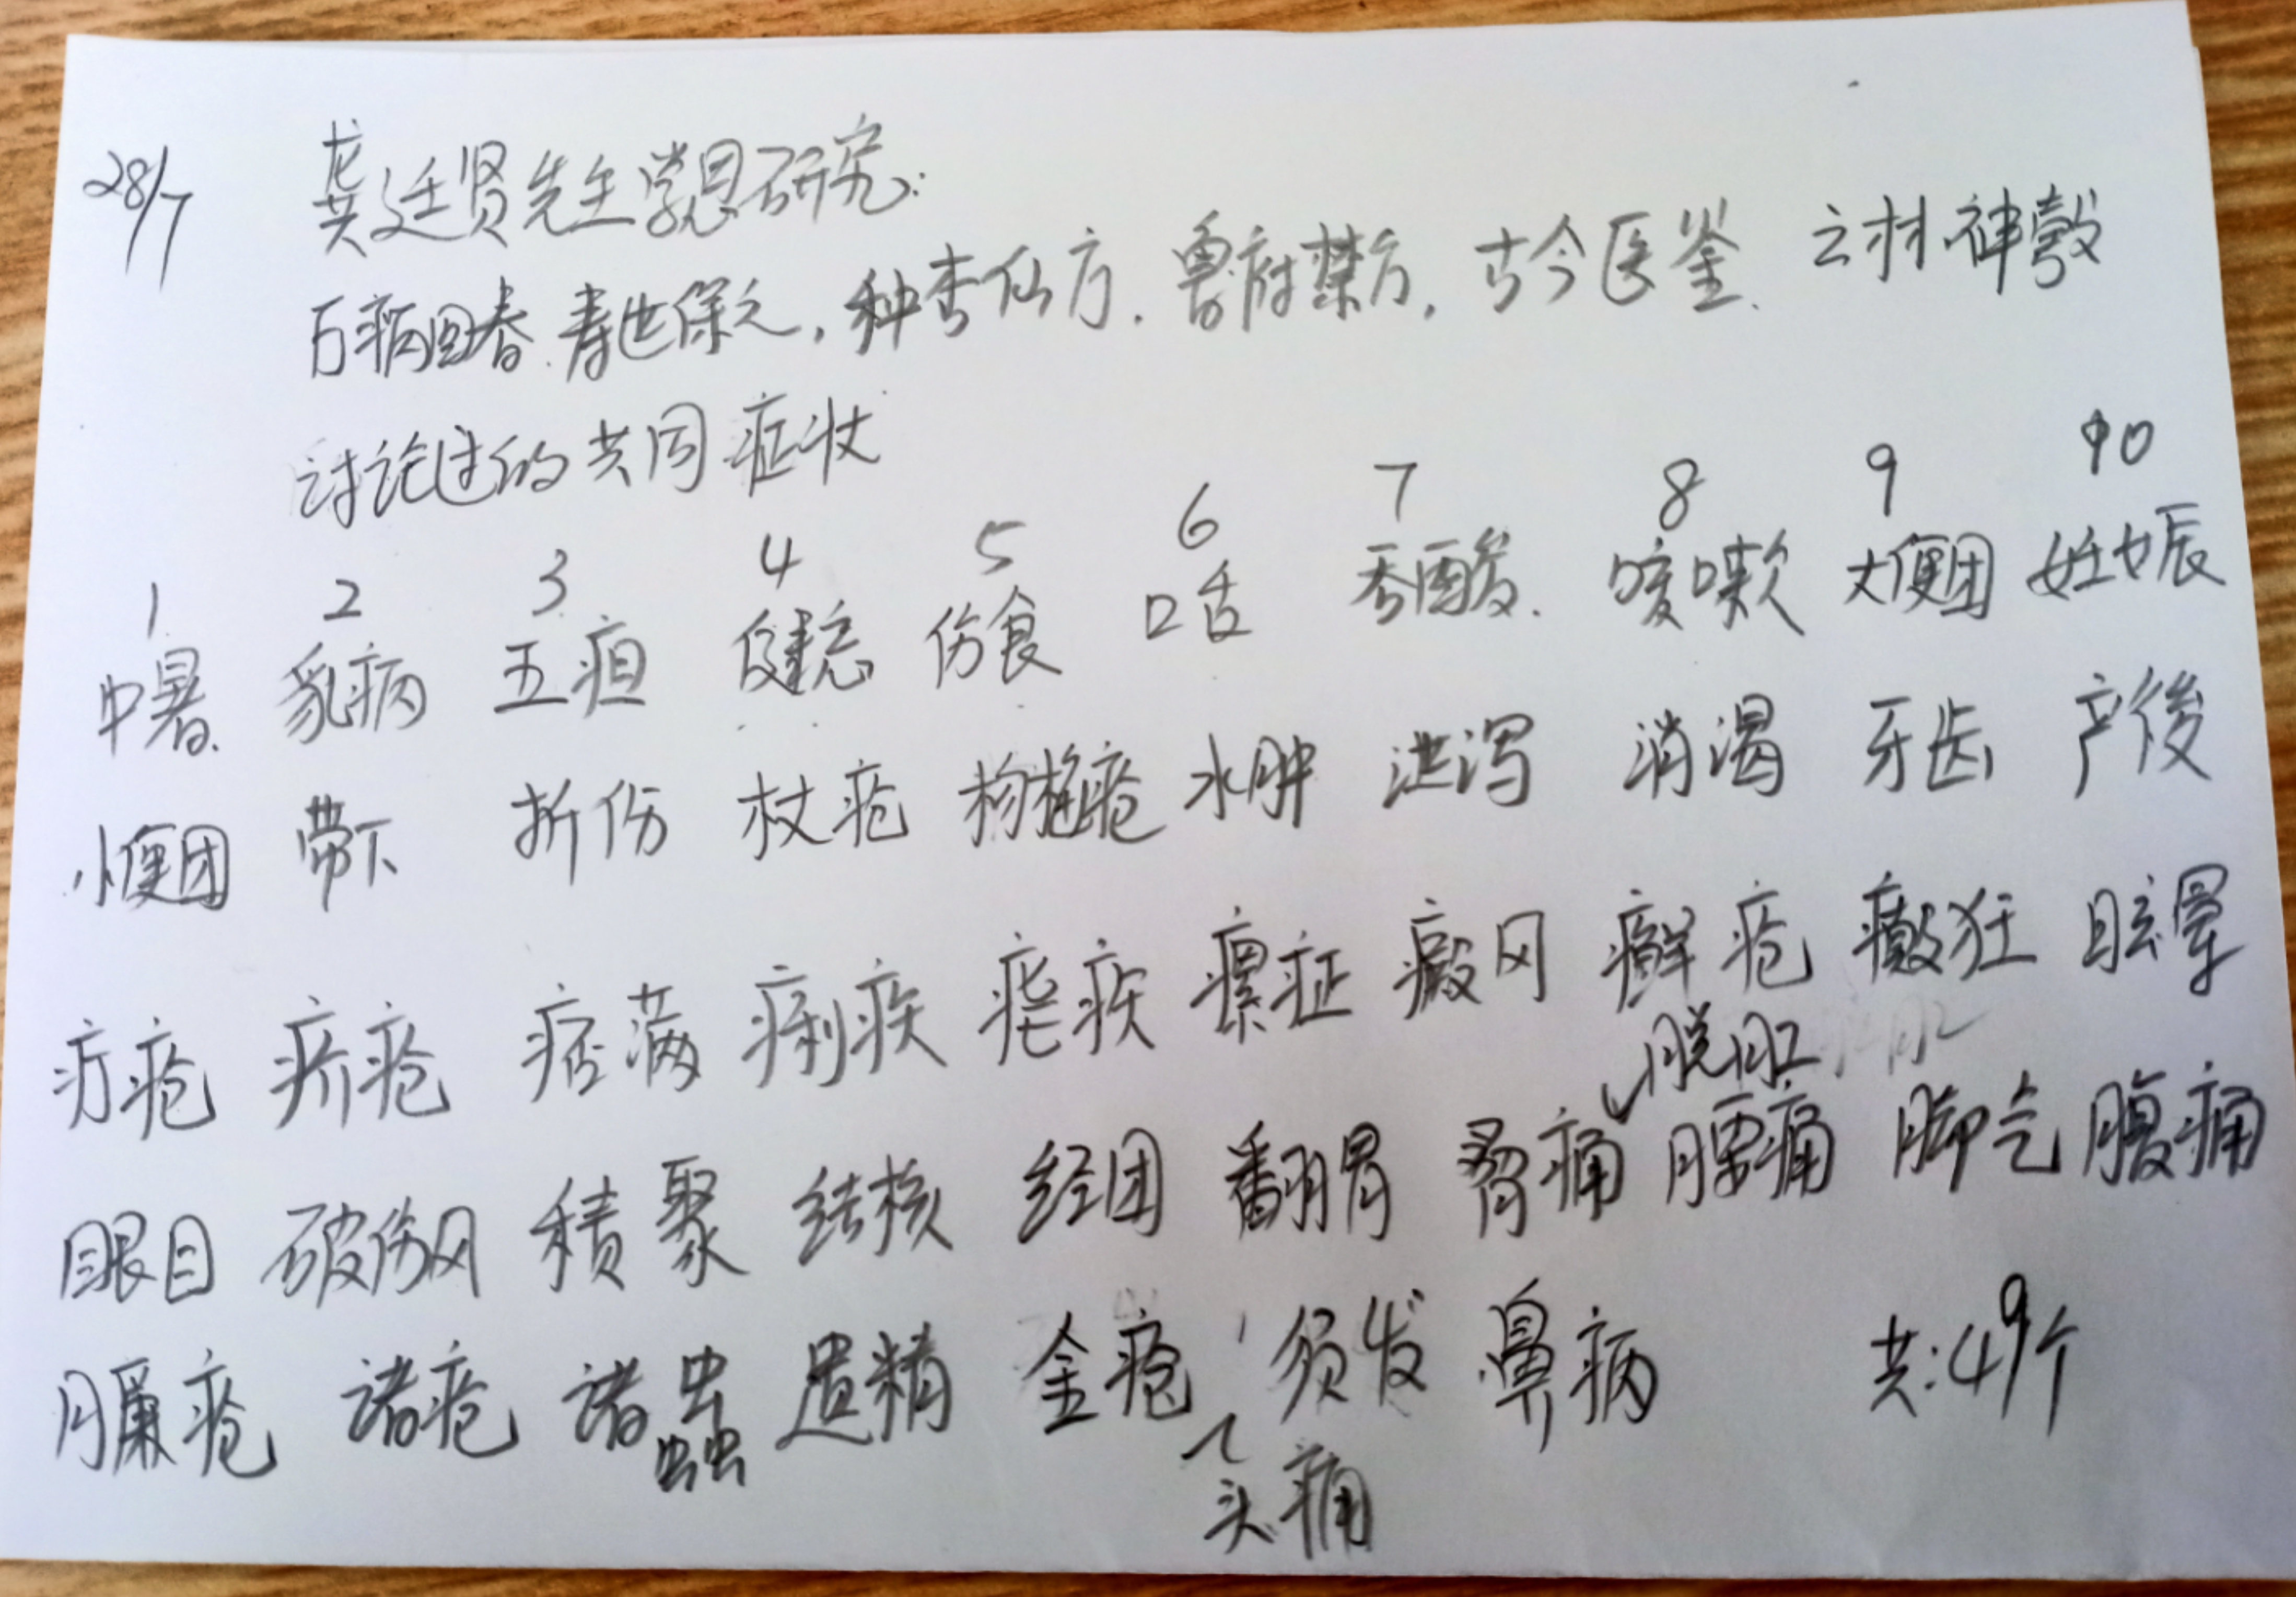 28/7 龚廷贤先生学思研究:
万病回春. 寿世保元, 种杏仙方. 鲁府禁方, 古今医鉴. 云林神彀
讨论过的共同症状
1 2 3 4 5 6 7 8 9 10
中暑. 乳病 五疸 健忘 伤食 口舌 吞酸. 咳嗽 大便闭 妊娠
小便闭 带下 折伤 杖疮 水肿 泄泻 消渴 牙齿 产後
疔疮 疥疮 痞满 痢疾 疟疾 瘰症 癜风 癣疮 癫狂 眩晕
脱肛
眼目 破伤风 积聚 结核 经闭 翻胃 胁痛 腰痛 脚气 腹痛
臁疮 诸疮 诸蟲 遗精 金疮 须发 鼻病 共:49个
头痛